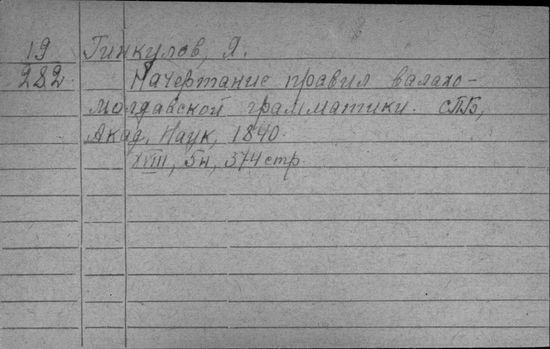 19 Гинкулов, Я.
282 Начертание правил валахо-
молдавской грамматики. СПБ,
Акад. Наук, 1840.
XVIII, 5н, 374 стр.